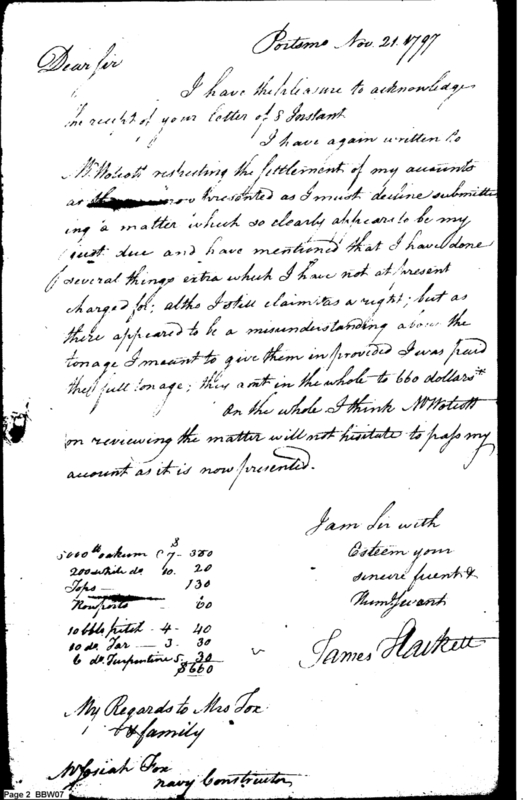 Portsmo Nov. 21. 1797
Dear Sir
I have the pleasure to acknowledge
the receipt of your letter of 8 Instant
I have again written to
Mr. Wolcott respecting the settlement of my accounts
as now presented as I must decline submitt
ing a matter which so clearly appears to be my
just due and have mentioned that I have done
several things extra which I have not at present
charged for; altho I still claim as a right; but as
there appeared to be a misunderstanding about the
tonage I meant to give them in provided I was paid
the full tonage; they amt in the whole to 660 dollars
On the whole I think Mr Wolcott
on reviewing the matter will not hisitate to pass my
account as it is now presented.
I am Sir with
Esteem your
sincere friend &
Hum Servant
James Hackett
$
5000 lb oakum @ 7 - 350
200 white do 10. 20
Tops - 130
60
10 bbls pitch - 4 - 40
10 do Tar - 3. 30
6 do Turpentine 5. 30
$660
My Regards to Mrs Fox
& family
Mr Josiah Fox
navy Constructor
Page 2 BBW07